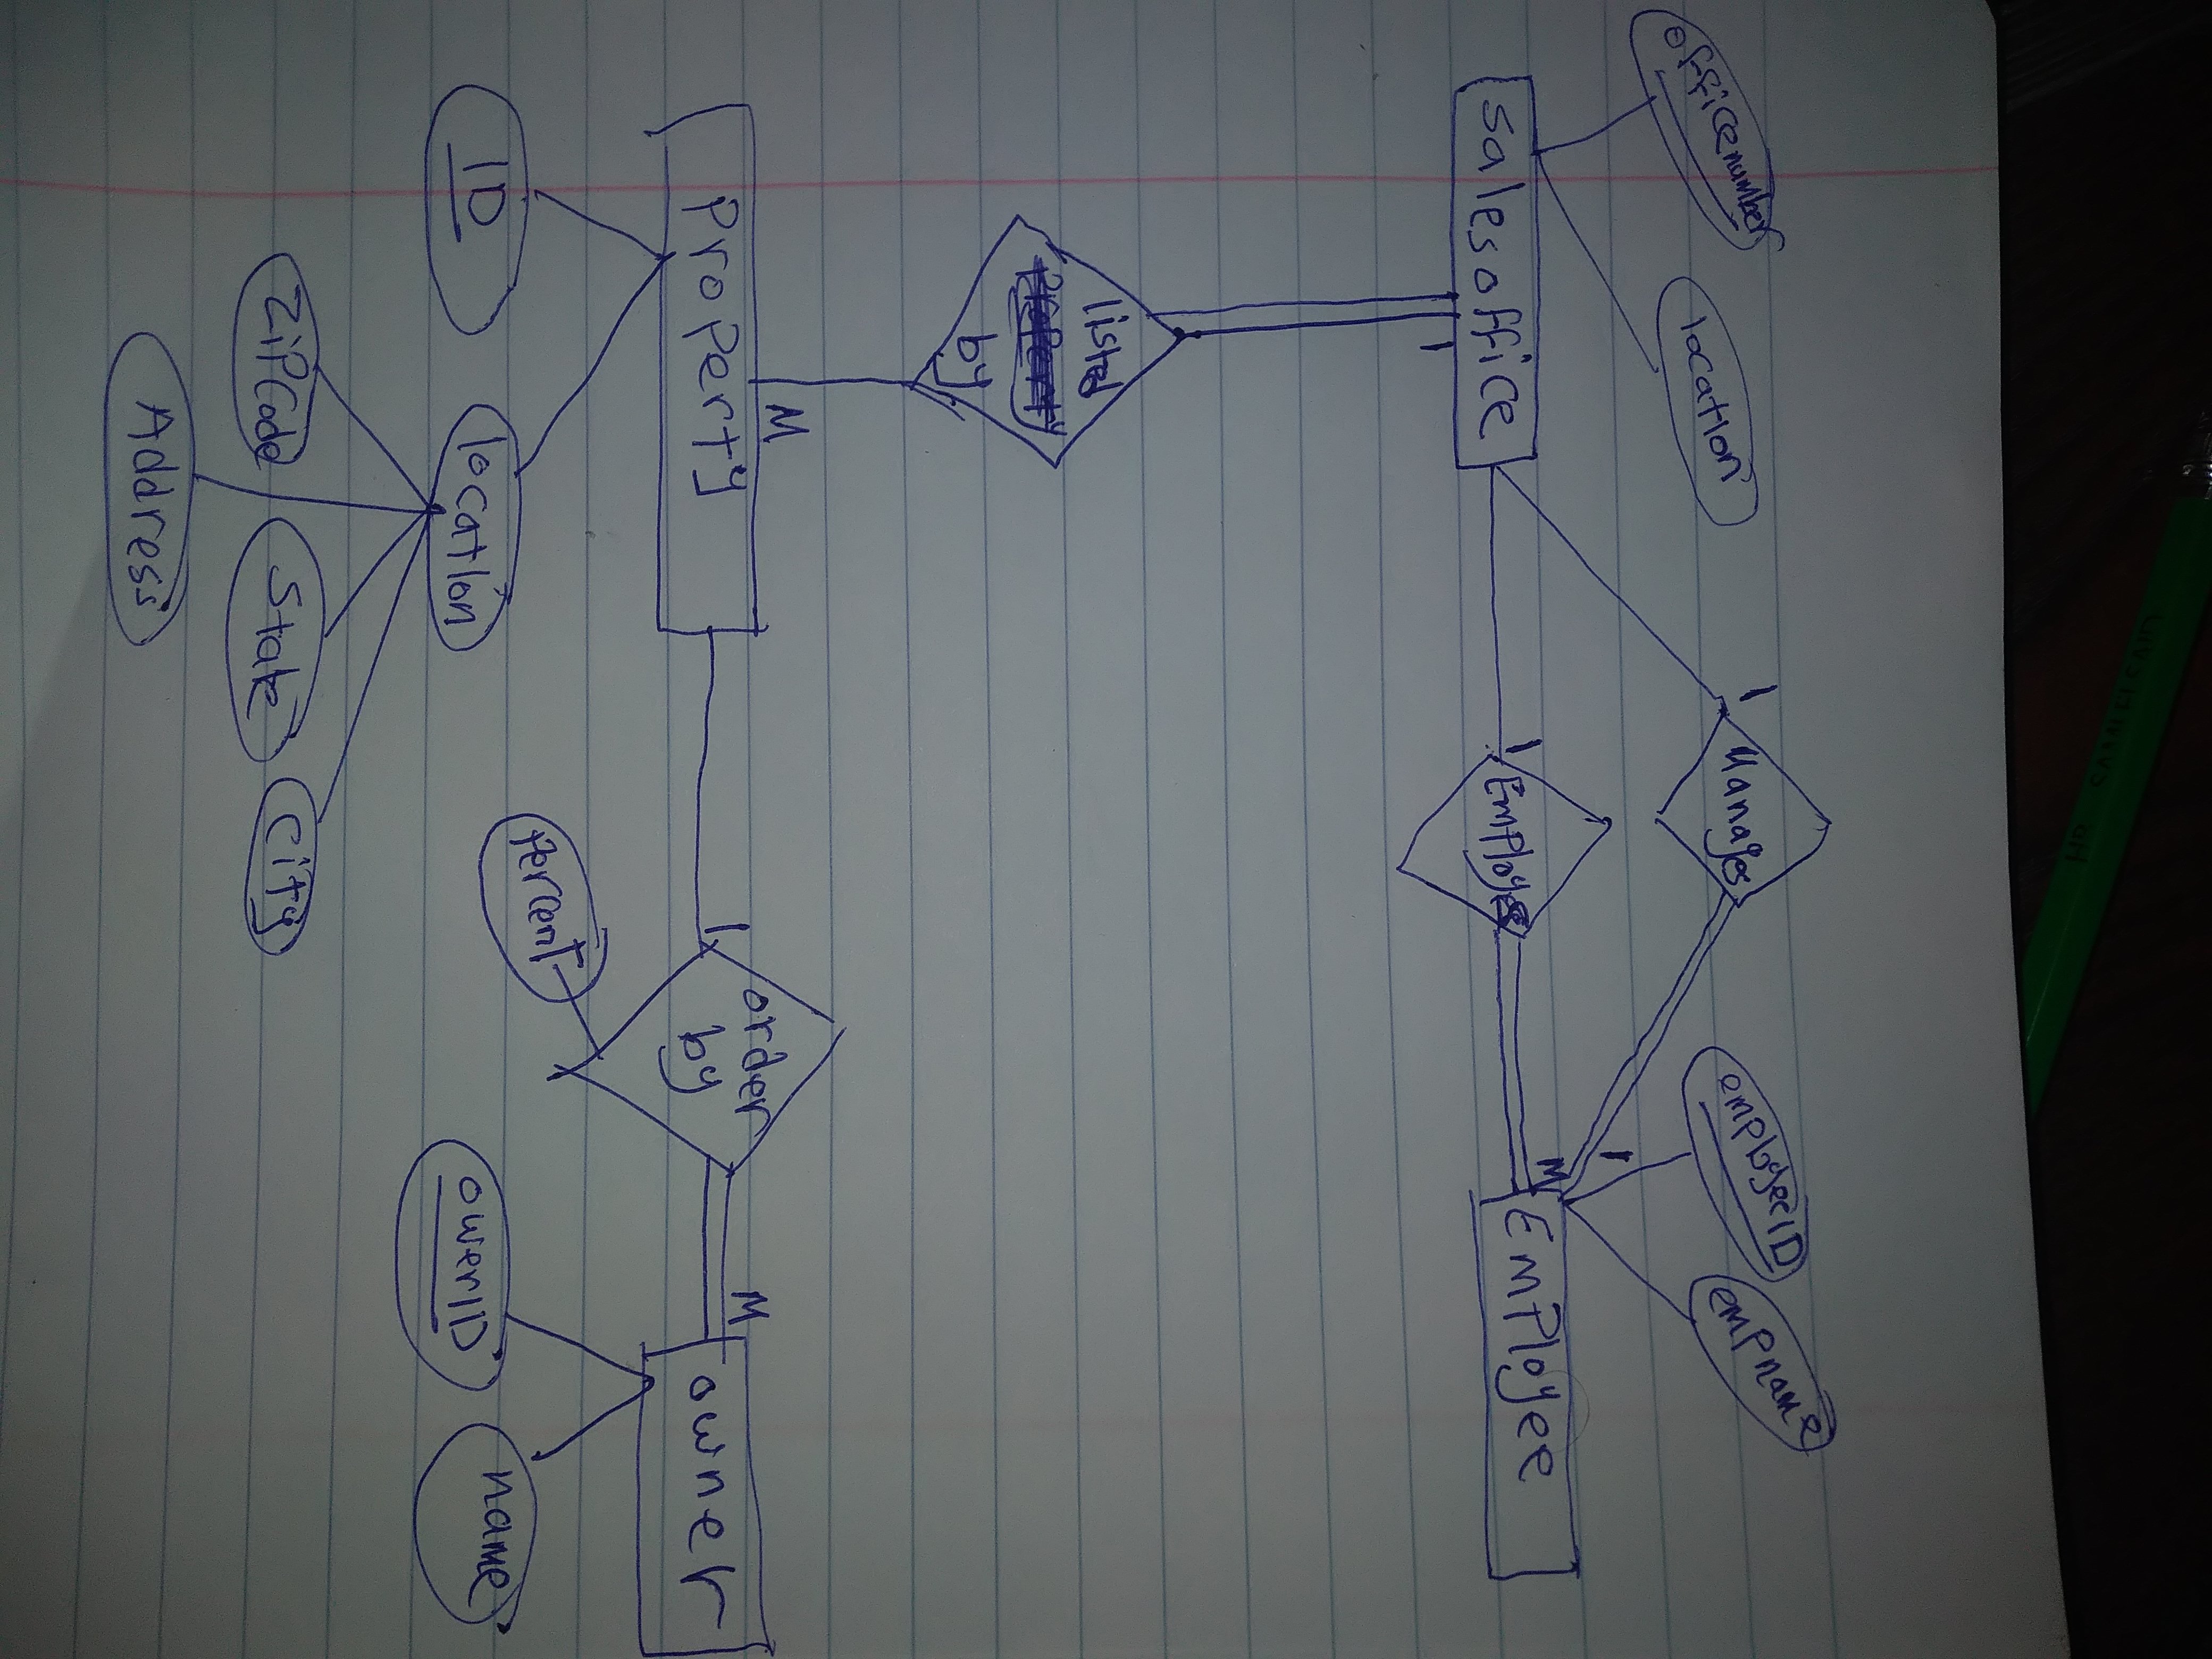 officenumber
location
1
Manages
employeeID
empname
1
salesoffice
1
Employee
M
Employee
1
listed
Property
by
M
Property
1
order
by
M
owner
Percent
ID
location
owerID
name
ZiPCode
State
City
Address